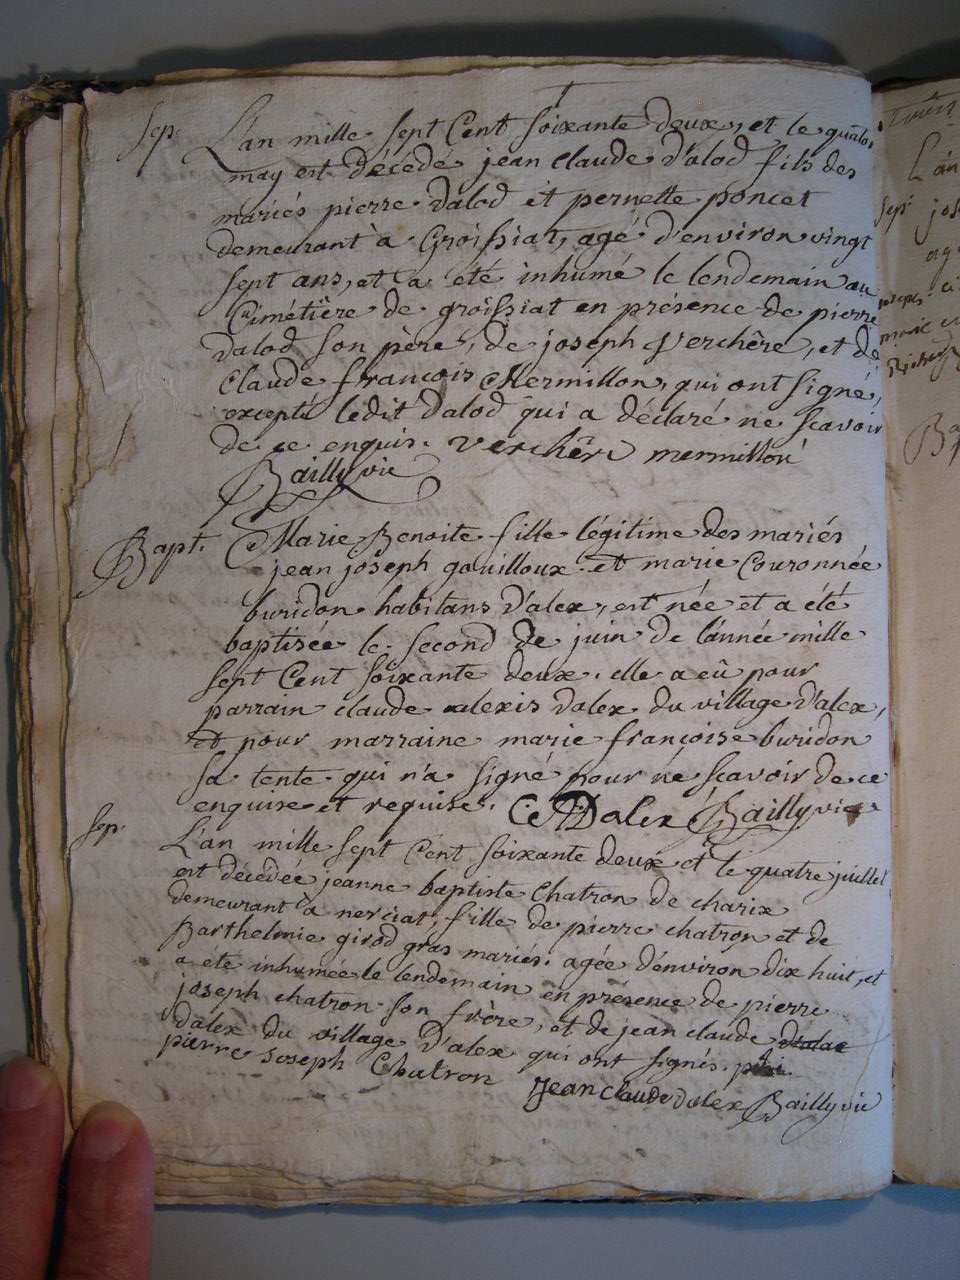 Sep. L'an mille sept Cent soixante deux, et le quator
may est décédé jean claude d'alod fils des
mariés pierre dalod et pernette poncet
demeurant à Groissiat, agé d'environ vingt
sept ans, et a été inhumé le lendemain au
Cimétière de groissiat en présence de pierre
dalod son père, de joseph Verchêre, et de
Claude françois Mermillon, qui ont signé,
excepté ledit dalod qui a déclaré ne scavoir
de ce enquis. Verchêre mermillon
Bailly vic
Bapt. Marie Benoite fille légitime des mariés
jean joseph gouilloux et marie Couronnée
buridon habitans d'alex, est née et a été
baptisée le second de juin de l'année mille
sept Cent soixante deux. elle a eû pour
parrain claude alexis dalex du village d'alex,
et pour marraine marie françoise buridon
sa tente qui n'a signé pour ne scavoir de ce
enquise et requise. C A Dalex Bailly vic
Sep. L'an mille sept Cent soixante deux et le quatre juillet
est décédée jeanne baptiste Chatron de charix
demeurant à nerciat, fille de pierre chatron et de
Barthelmie girod gras mariés. agée d'environ dix huit, et
a été inhumée le lendemain en présence de pierre
joseph chatron son frère, et de jean claude dalae
dalex du village d'alex qui ont signés.
pierre joseph Chatron jean claude dalex Bailly vic
Bapt